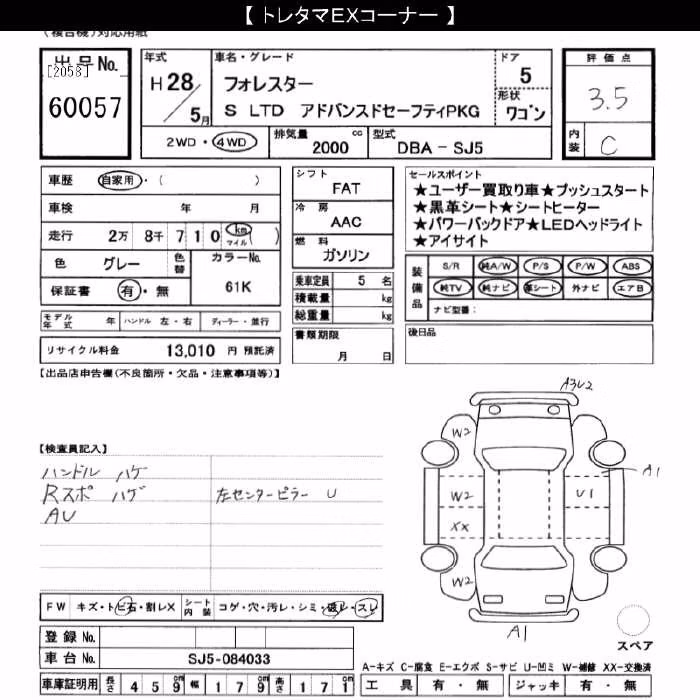 【 トレタマEXコーナー 】
(複合機)対応用紙
出品No.
[2058]
60057
年式
H28/5月
車名・グレード
フォレスター
S LTD アドバンスドセーフティPKG
ドア
5
形状
ワゴン
評価点
3.5
内装
C
2WD・4WD
排気量
2000 cc
型式
DBA - SJ5
車歴 自家用・( )
車検 年 月
走行 2万 8千 7 1 0 km マイル ( )
色 グレー 色替
カラーNo.
61K
保証書 有・無
モデル年式 年 ハンドル 左・右 ディーラー・並行
リサイクル料金 13,010 円 預託済
シフト
FAT
冷房
AAC
燃料
ガソリン
乗車定員 5 名
積載量 kg
総重量 kg
書類期限
月 日
セールスポイント
★ユーザー買取り車★プッシュスタート
★黒革シート★シートヒーター
★パワーバックドア★LEDヘッドライト
★アイサイト
装備品
S/R 純A/W P/S P/W ABS
純TV 純ナビ 革シート 外ナビ エアB
ナビ型番:
後日品
【出品店申告欄(不良箇所・欠品・注意事項等)】
【検査員記入】
ハンドル ハゲ
Rスポ ハゲ
AU
左センターピラー U
A3U2
W2
A1
W2
U1
XX
W2
A1
スペア
FW キズ・トビ石・割レX シート内装 コゲ・穴・汚レ・シミ・破レ・スレ
登録No.
車台No. SJ5-084033
車庫証明用 長さ 4 5 9 cm 幅 1 7 9 cm 高さ 1 7 1 cm
A-キズ C-腐食 E-エクボ S-サビ U-凹ミ W-補修 XX-交換済
工具 有・無 ジャッキ 有・無